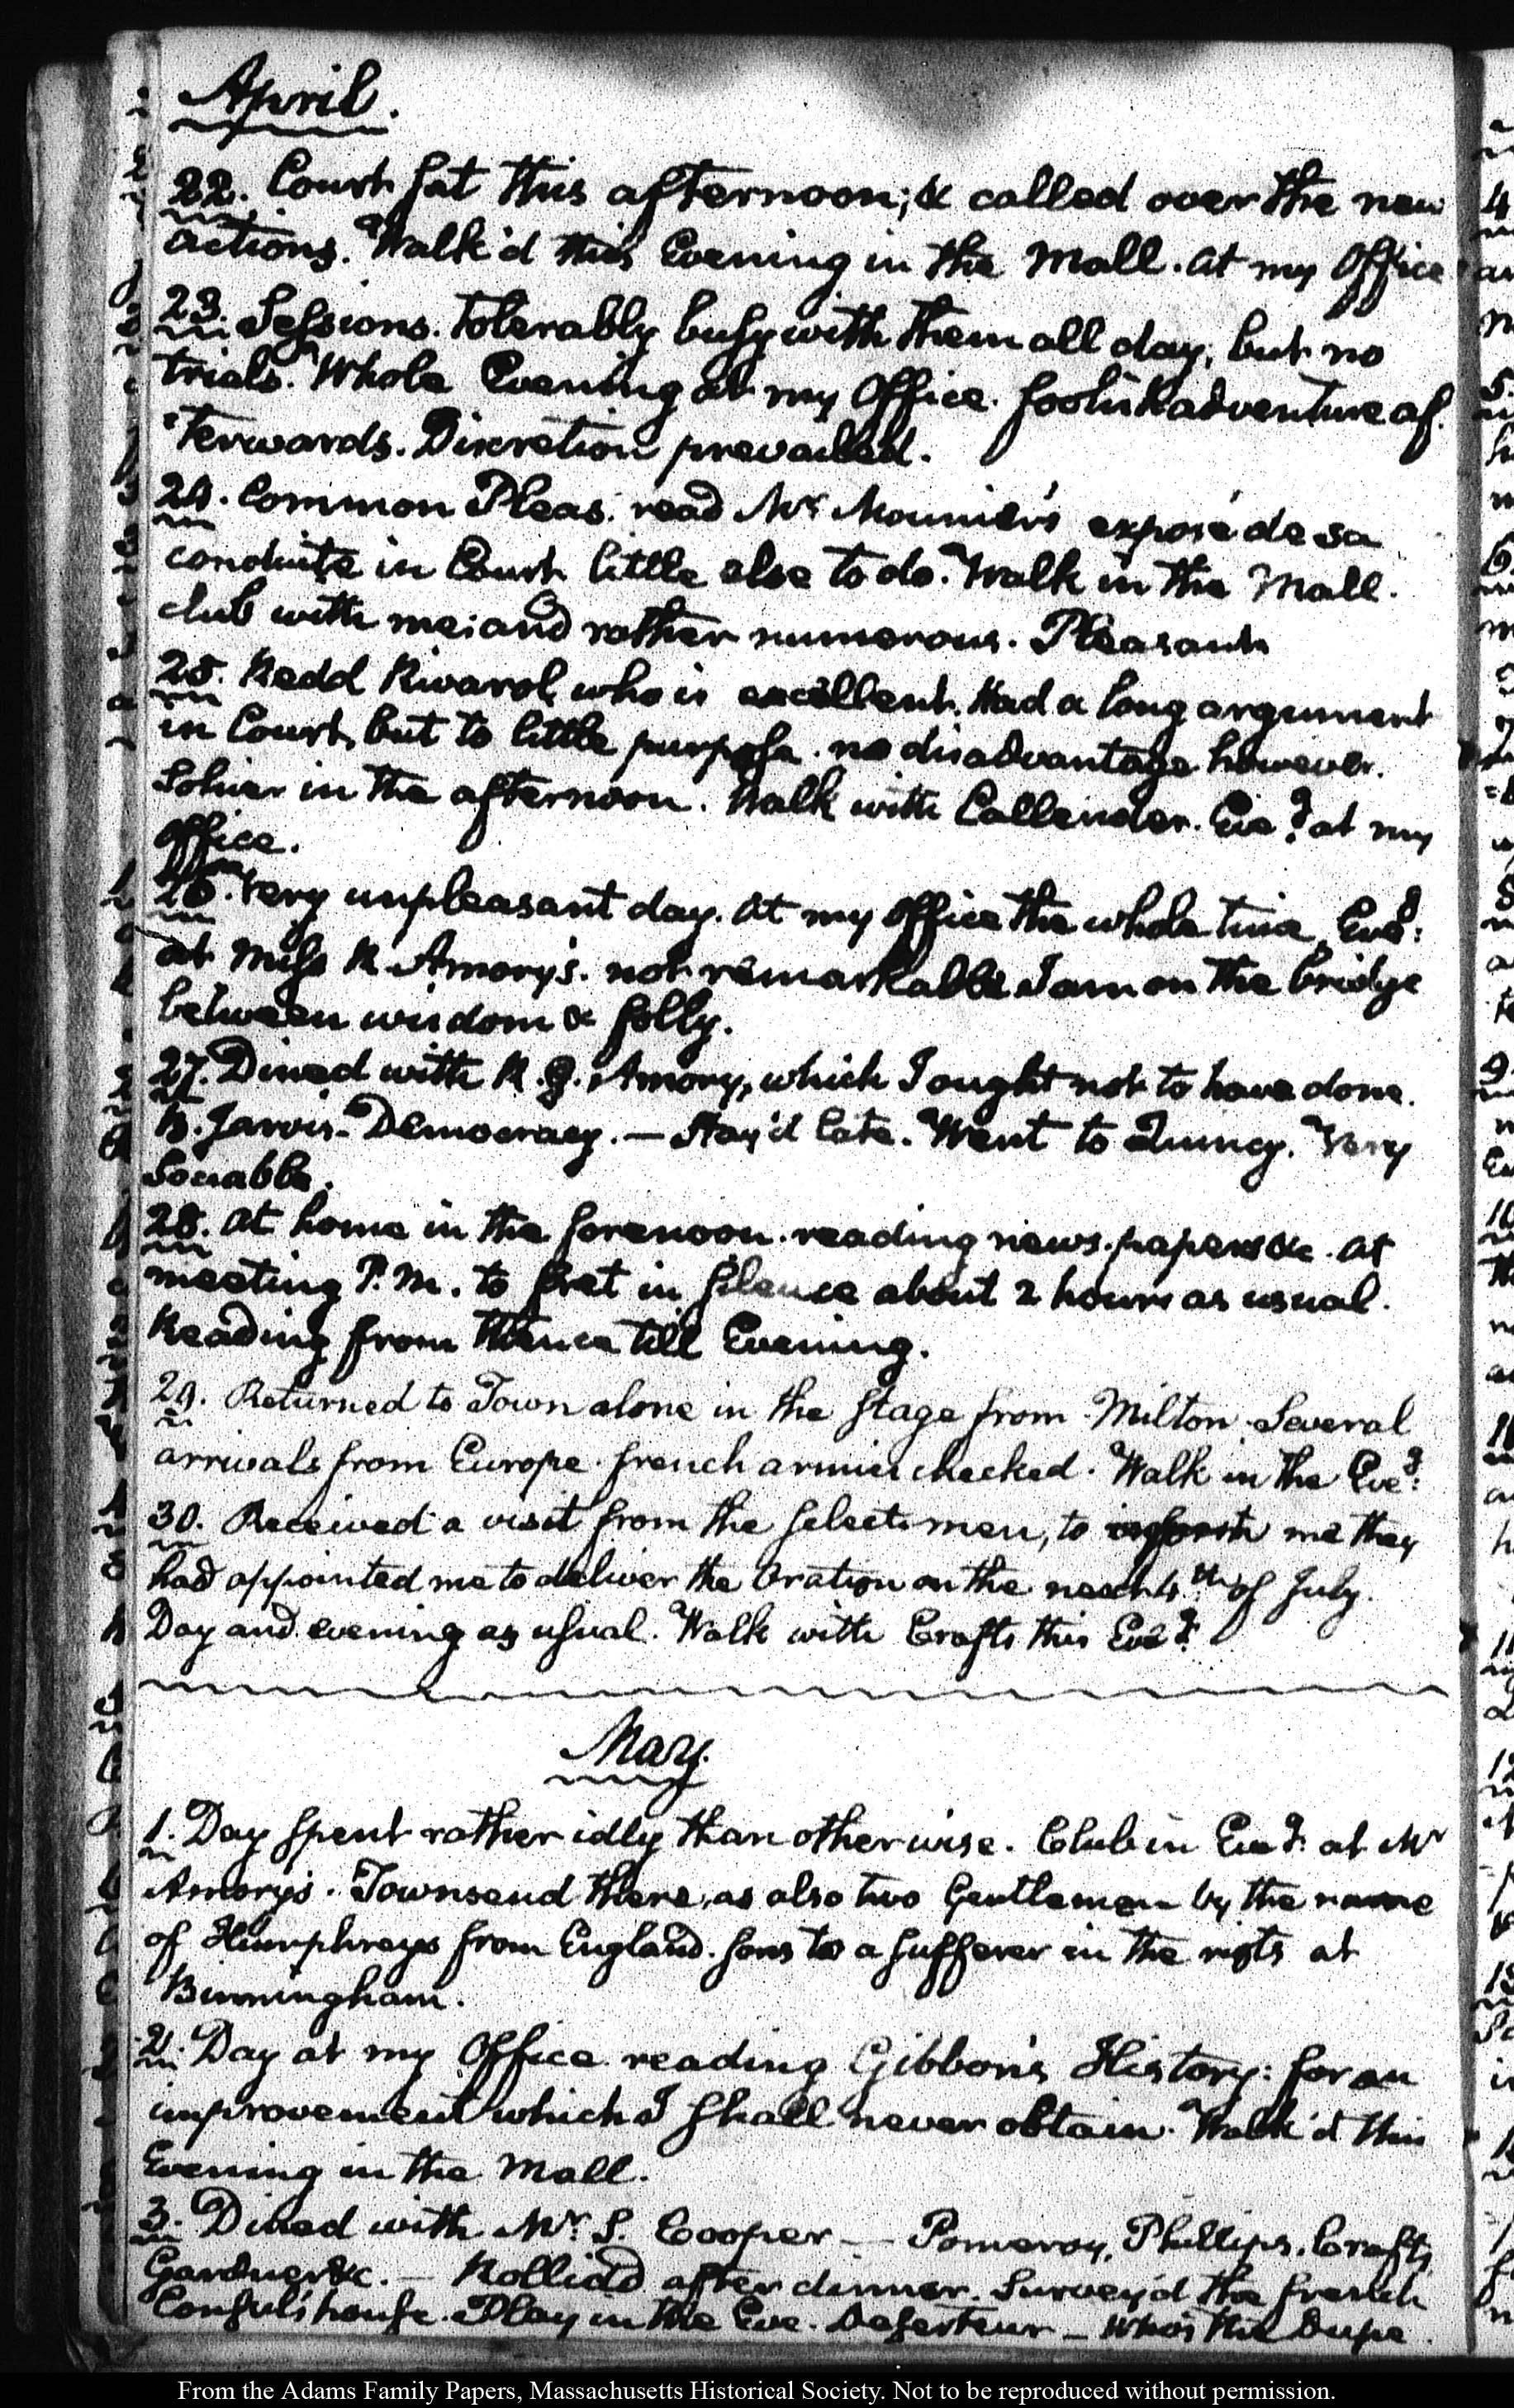 April.
22. Court sat this afternoon; & called over the new
actions. Walk'd this Evening in the Mall. at my Office
23. Sessions. tolerably busy with them all day; but no
trials. Whole Evening at my Office. foolish adventure af-
terwards. Discretion prevailed.
24. Common Pleas. read Mr. Mounier's exposé de sa
conduite in Court little else to do. Walk in the Mall.
club with me: and rather numerous. Pleasant
25. Read Rivarol, who is excellent. Had a long argument
in Court, but to little purpose. no disadvantage however.
Sohier in the afternoon. Walk with Callender. Eveg. at my
office.
26. Very unpleasant day. at my office the whole time. Eveg:
at Miss R. Amory's. not remarkable. I am on the bridge
between wisdom & folly.
27. Dined with R. G. Amory, which I ought not to have done.
Jarvis. Democracy. — Stay'd late. Went to Quincy. Very
Sociable.
28. at home in the forenoon. reading news-papers &c. at
meeting P.M. to fret in silence about 2 hours as usual.
Reading from thence till Evening.
29. Returned to Town alone in the stage from Milton. Several
arrivals from Europe. french armies checked. Walk in the Eveg:
30. Received a visit from the selectmen, to inform me they
had appointed me to deliver the Oration on the next 4th. of July.
Day and evening as usual. Walk with Crafts this Eveg.
May.
1. Day spent rather idly than otherwise. Club in Eveg: at Mr
Amory's. Townsend there, as also two Gentlemen by the name
of Humphreys from England. sons to a sufferer in the riots at
Birmingham.
2. Day at my Office reading Gibbon's History: for an
improvement which I shall never obtain. Walk'd this
Evening in the Mall.
3. Dined with Mr. S. Cooper — Pomeroy, Phillips, Crafts,
Gardner &c. — after dinner. Survey'd the french
Consul's house. Play in the Eve. Deserteur — Who's the Dupe.
From the Adams Family Papers, Massachusetts Historical Society. Not to be reproduced without permission.